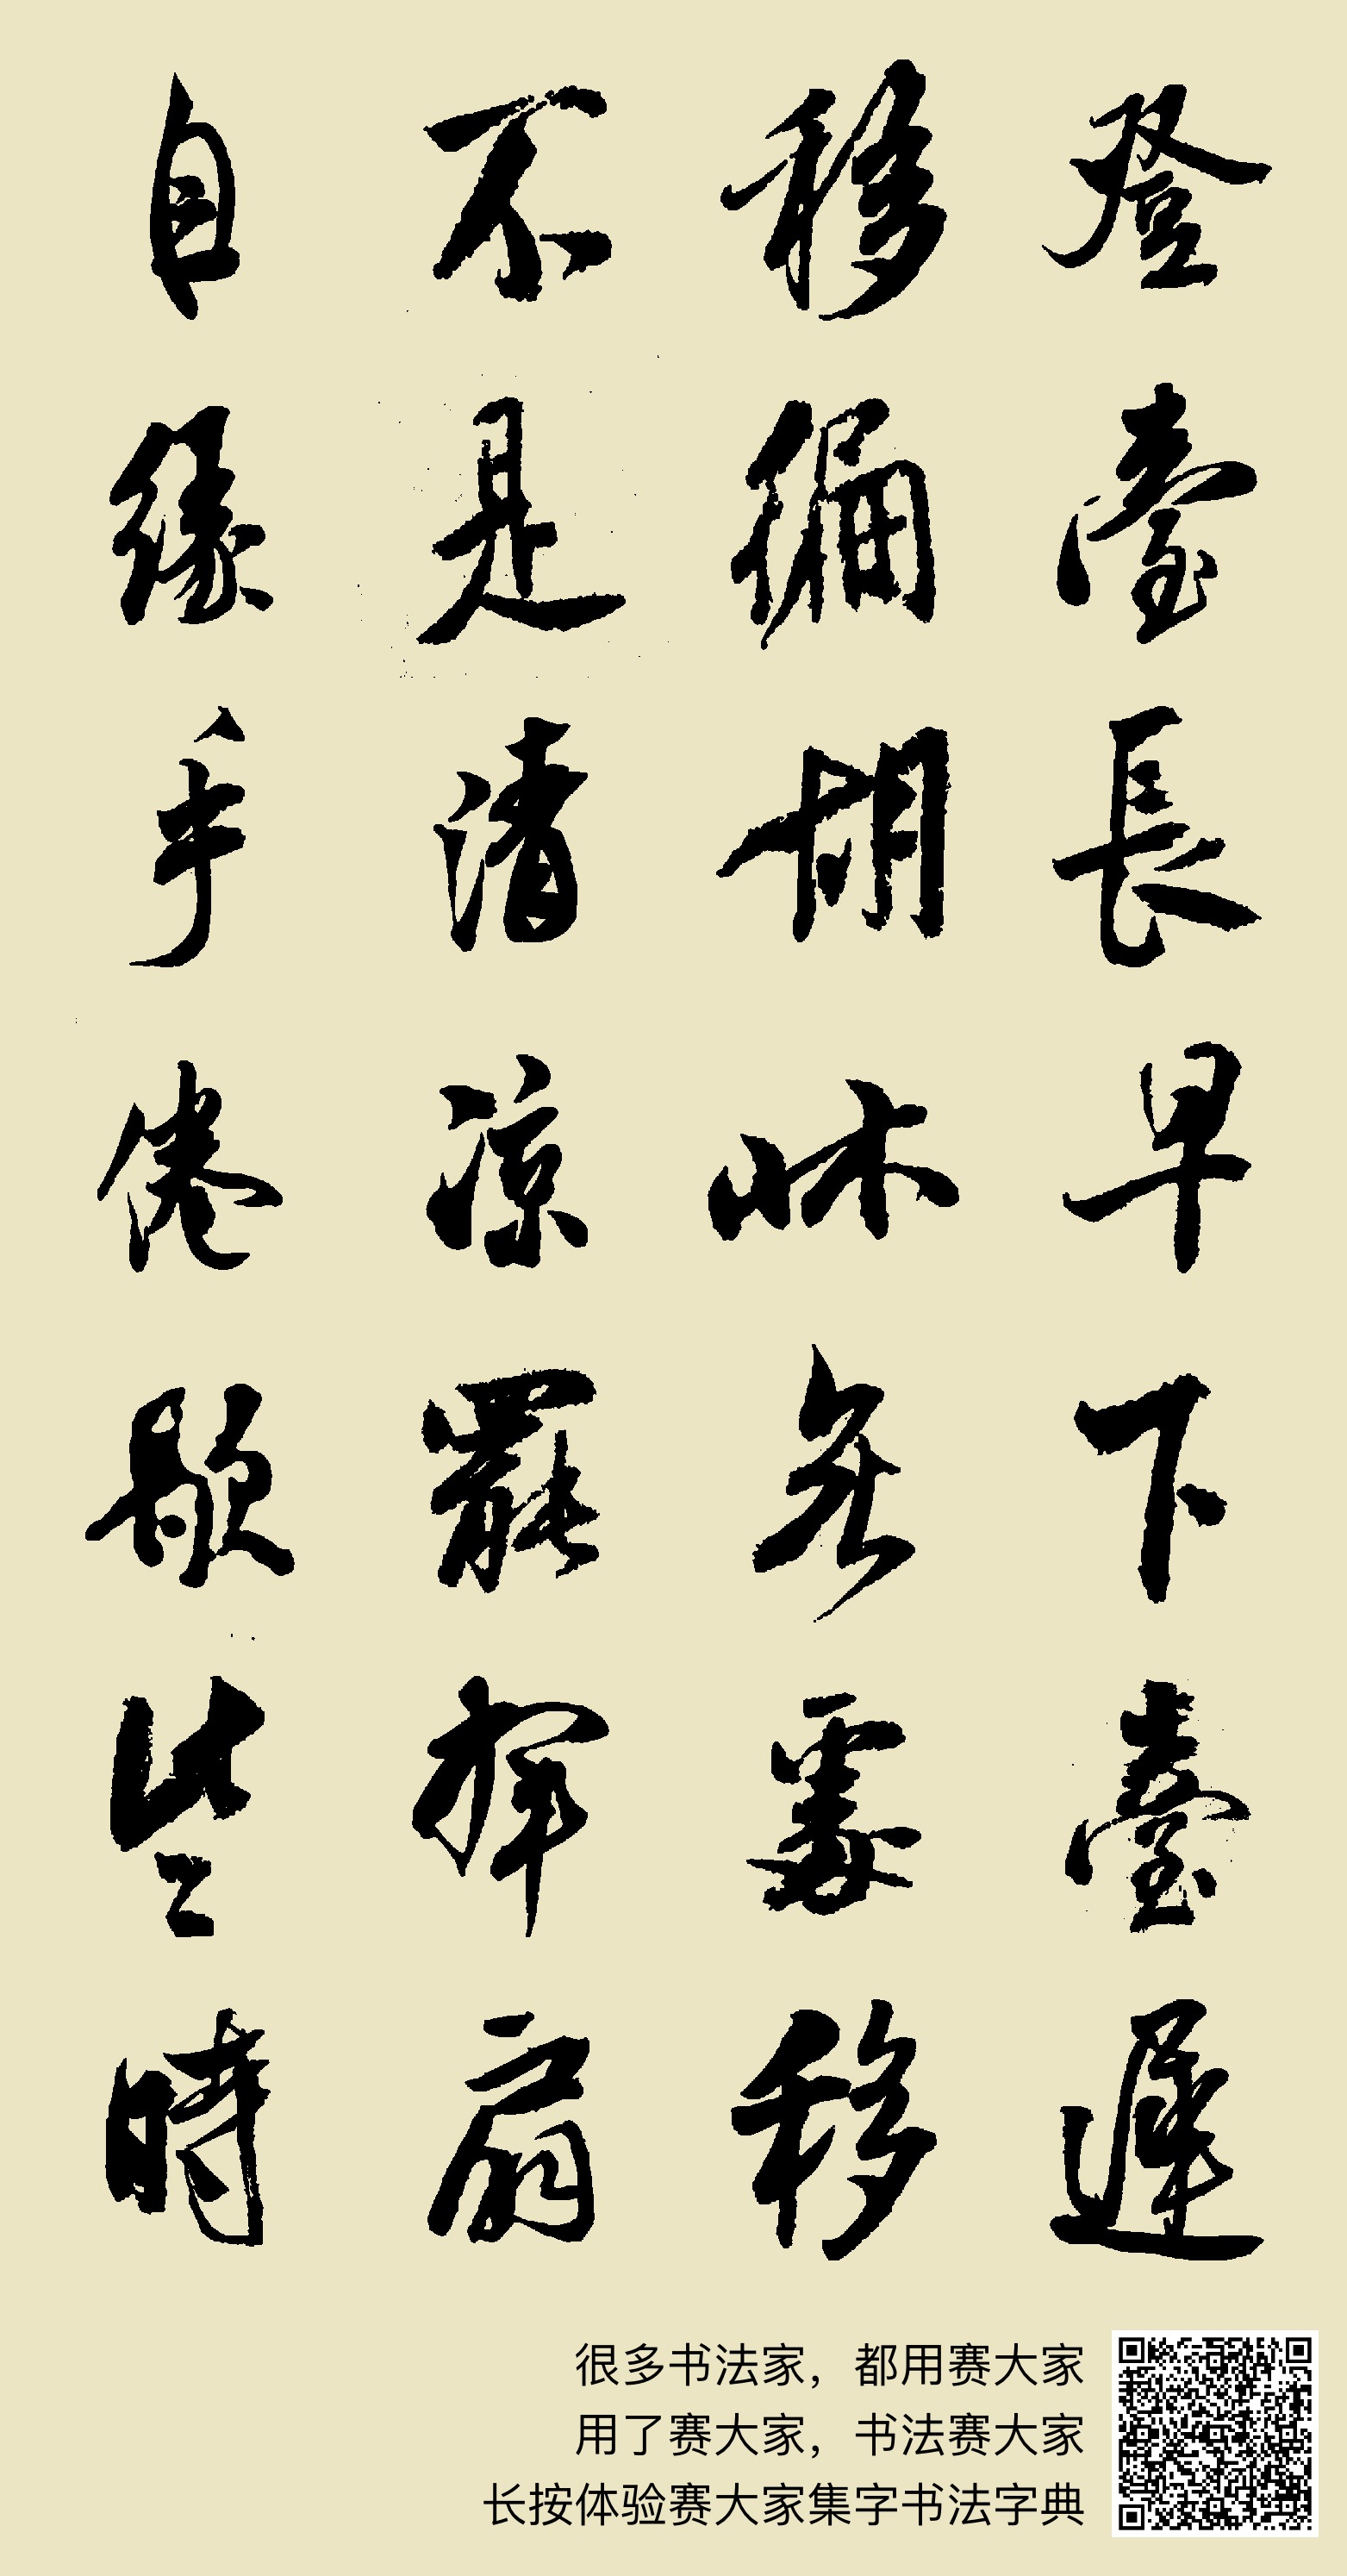 登臺長早下臺遲
移徧胡牀無處移
不是清涼罷揮扇
自緣手倦歇些時
很多书法家，都用赛大家
用了赛大家，书法赛大家
长按体验赛大家集字书法字典